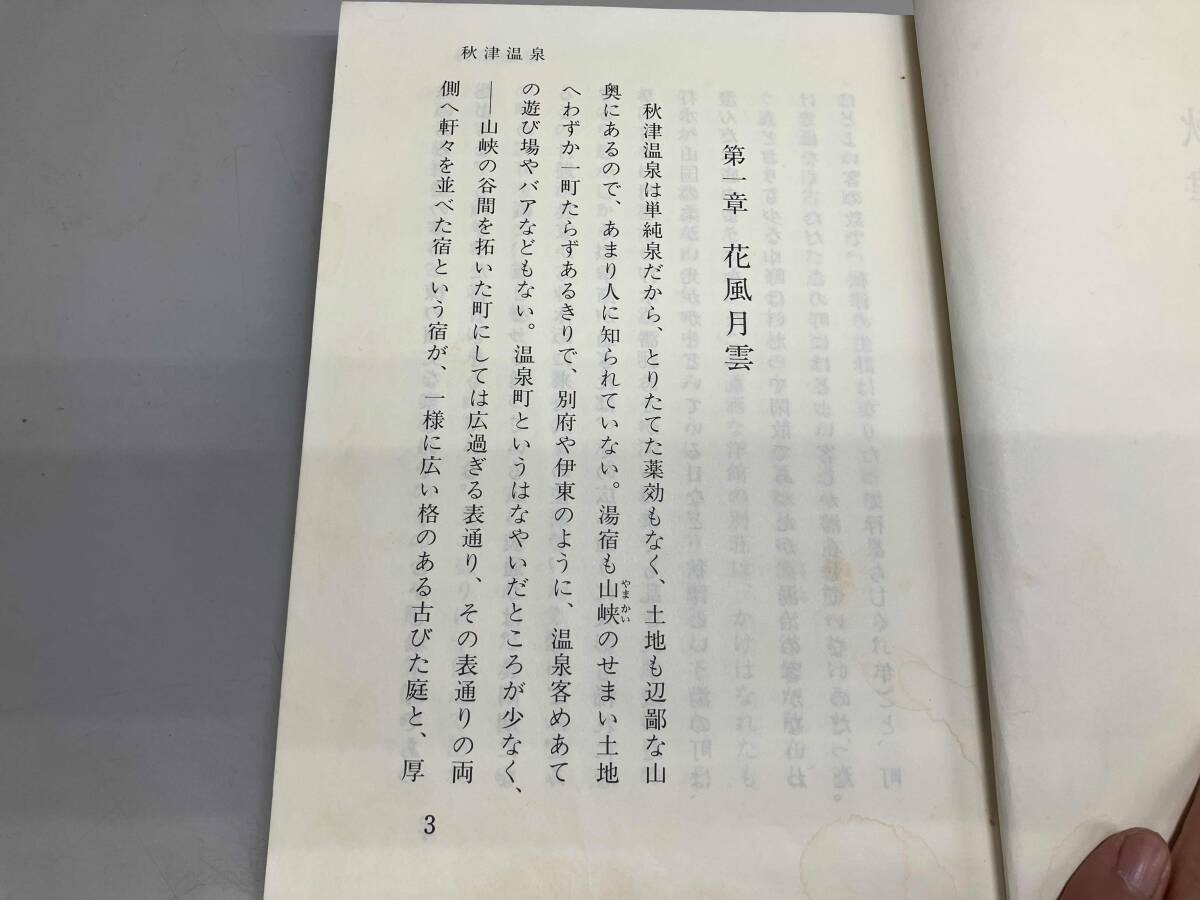 秋津温泉
第一章　花風月雲
秋津温泉は単純泉だから、とりたてた薬効もなく、土地も辺鄙な山
奥にあるので、あまり人に知られていない。湯宿も山峡のせまい土地
やまかい
へわずか一町たらずあるきりで、別府や伊東のように、温泉客めあて
の遊び場やバアなどもない。温泉町というはなやいだところが少なく、
――山峡の谷間を拓いた町にしては広過ぎる表通り、その表通りの両
側へ軒々を並べた宿という宿が、一様に広い格のある古びた庭と、厚
3